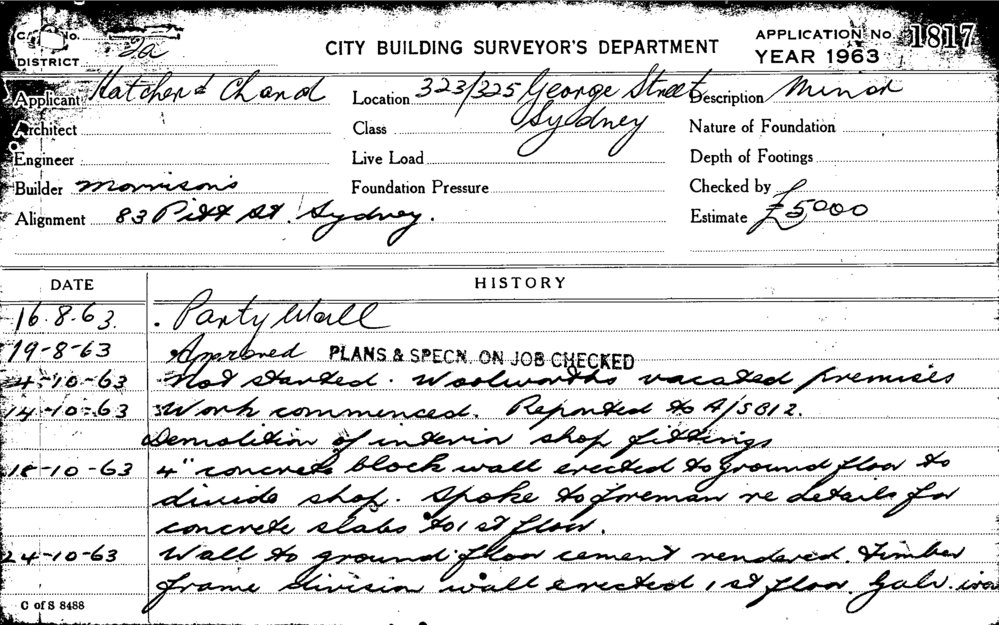 C. No.
DISTRICT 2a
CITY BUILDING SURVEYOR'S DEPARTMENT
APPLICATION No. 1817
YEAR 1963
Applicant Hatcher & Chand Location 323/325 George Street Description Minor
Sydney
Architect Class Nature of Foundation
Engineer Live Load Depth of Footings
Builder Morrison's Foundation Pressure Checked by
Alignment 83 Pitt St. Sydney. Estimate £5000
DATE HISTORY
16.8.63. Party Wall
19-8-63 Approved PLANS & SPECN. ON JOB CHECKED
4-10-63 Not started. Woolworths vacated premises
14-10-63 Work commenced. Reported to A/SB12.
Demolition of interior shop fittings
18-10-63 4" concrete block wall erected to ground floor to
divide shop. Spoke to foreman re details for
concrete slabs to 1st floor.
24-10-63 Wall to ground floor cement rendered. Timber
frame division wall erected 1st floor. Galv. iron
C of S 8488